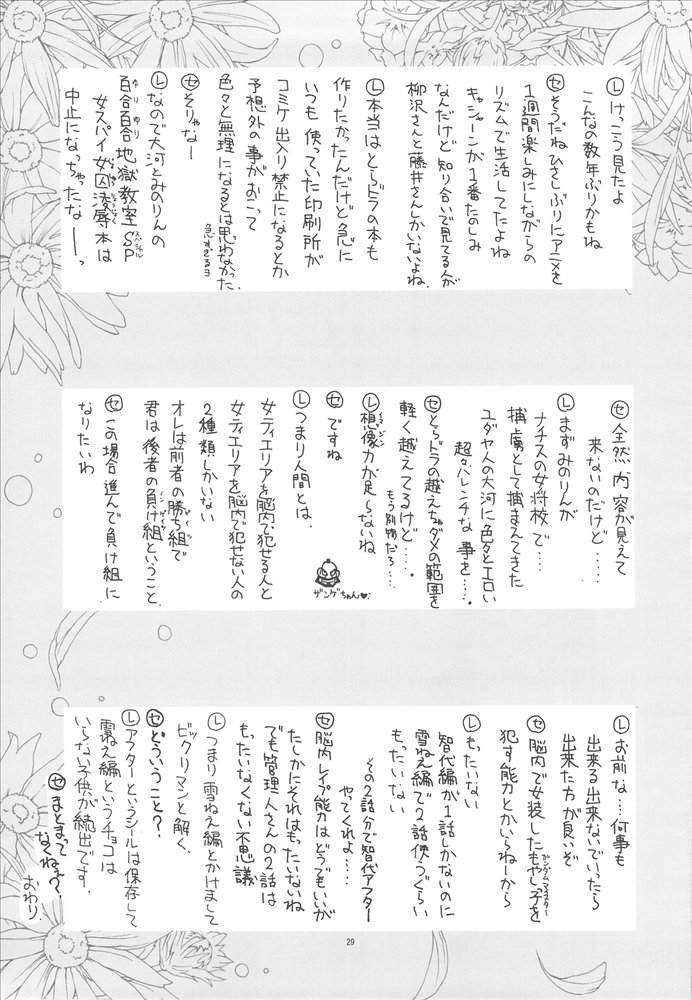 Ⓛけっこう見たよ
こんなの数年ぶりかもね
Ⓢそうだねひさしぶりにアニメを
1週間楽しみにしながらの
リズムで生活してたよね
キャシャーンが1番たのしみ
なんだけど知り合いで見てる人が
柳沢さんと藤井さんしかいないよね
Ⓛ本当はとらドラの本も
作りたかったんだけど急に
いつも使っていた印刷所が
コミケ出入り禁止になるとか
予想外の事がおこって
色々と無理になるとは思わなかった
急すぎるヨ
Ⓢそりゃなー
Ⓛなので大河とみのりんの
百合百合地獄教室SP
ゆりゆり
スペシャル
女スパイ女囚凌辱本は
中止になっちゃったなーっ
Ⓢ全然内容が見えて
来ないのだけど……
Ⓛまずみのりんが
ナチスの女将校で…
捕虜として捕まえてきた
ユダヤ人の大河に色々とエロい
超ハレンチな事を…
Ⓢとらドラの越えちゃダメの範囲を
軽く越えてるけど……
もう別物だろ…
Ⓛ想像力が足らないね
イマジン
Ⓢですね
Ⓛつまり人間とは、
女ティエリアを脳内で犯せる人と
女ティエリアを脳内で犯せない人の
2種類しかいない
オレは前者の勝ち組で
君は後者の負け組ということ
Ⓢこの場合進んで負け組に
なりたいわ
ザンゲちゃん♥
Ⓛお前な…何事も
出来る出来ないでいったら
出来た方が良いぞ
Ⓢ脳内で女装したもやしっ子を
ガンダムマイスター
犯す能力とかいらねーから
Ⓛもったいない
智代編が1話しかないのに
雪ねえ編で2話使うぐらい
もったいない
その2話分で智代アフター
やてくれよ……
Ⓢ脳内レイプ能力はどうでもいいが
たしかにそれはもったいないね
でも管理人さんの2話は
もったいなくない不思議
Ⓛつまり雪ねえ編とかけまして
ビックリマンと解く、
Ⓢどういうこと?
Ⓛアフターというシールは保存して
雪ねえ編というチョコは
いらない子供が続出です、
Ⓢまとまって
なくね?
おわり
29